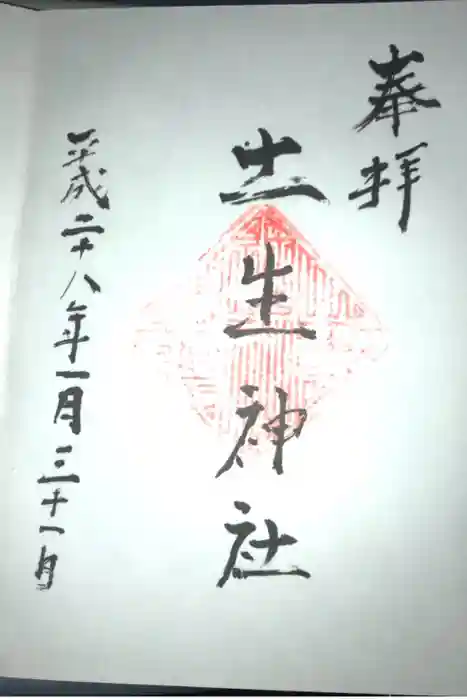 奉拝
土生神社
平成二十八年一月三十一日